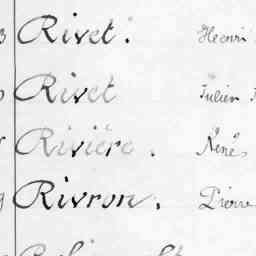 Rivet. Henri
Rivet Julien
Rivière. René
Rivron. Pierre